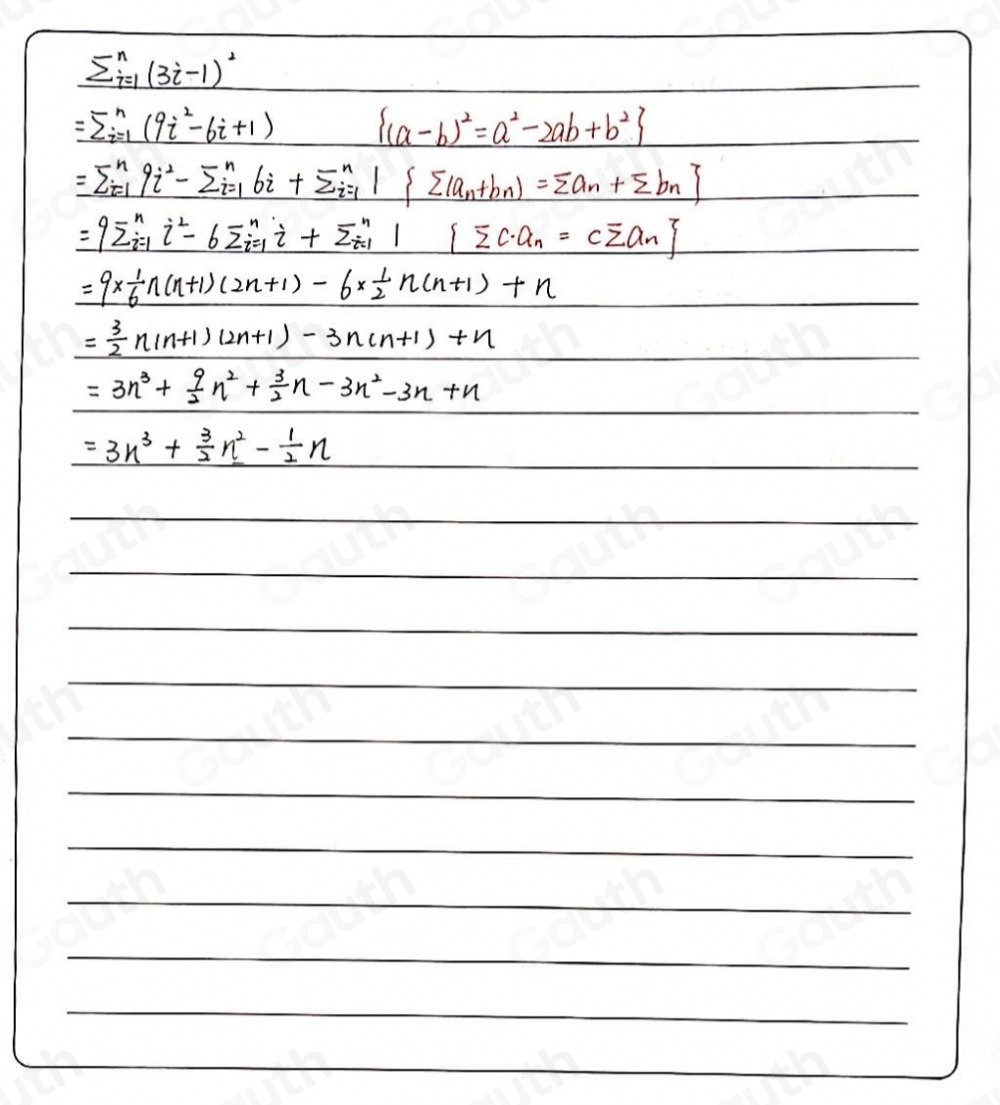 ∑ⁿᵢ₌₁ (3i-1)²
= ∑ⁿᵢ₌₁ (9i²-6i+1) {(a-b)² = a²-2ab+b²}
= ∑ⁿᵢ₌₁ 9i² - ∑ⁿᵢ₌₁ 6i + ∑ⁿᵢ₌₁ 1 {∑(aₙ+bₙ) = ∑aₙ + ∑bₙ}
= 9∑ⁿᵢ₌₁ i² - 6∑ⁿᵢ₌₁ i + ∑ⁿᵢ₌₁ 1 {∑c·aₙ = c∑aₙ}
= 9×1/6 n(n+1)(2n+1) - 6×1/2 n(n+1) + n
= 3/2 n(n+1)(2n+1) - 3n(n+1) + n
= 3n³ + 9/2 n² + 3/2 n - 3n² - 3n + n
= 3n³ + 3/2 n² - 1/2 n